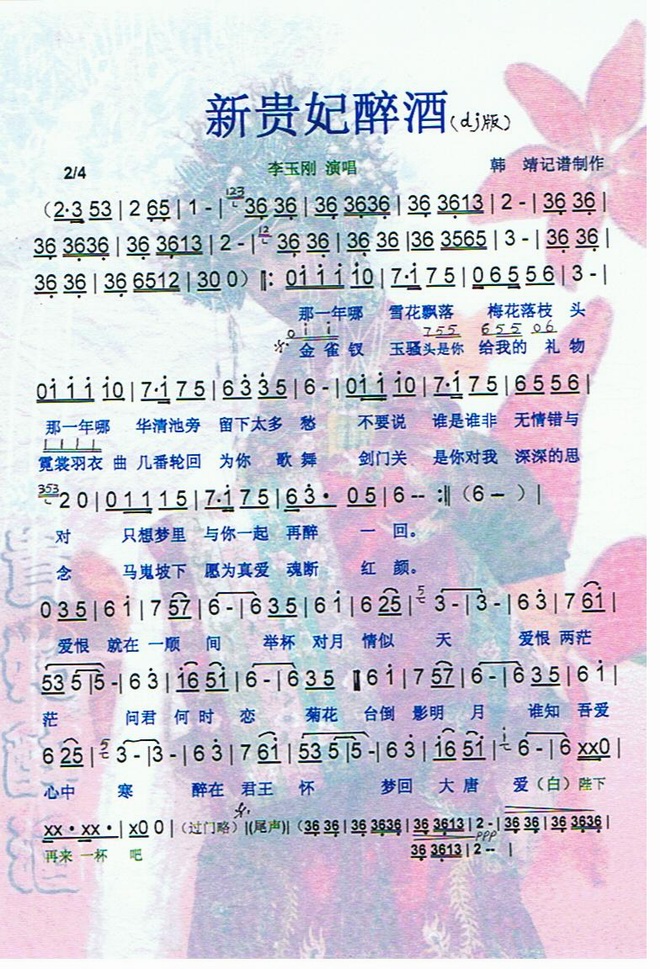 新贵妃醉酒(dj版)
2/4 李玉刚 演唱 韩 靖记谱制作
(2·3 53 | 2 65 | 1 - | 123 36 36 | 36 3636 | 36 3613 | 2 - | 36 36 |
36 3636 | 36 3613 | 2 - | 12 36 36 | 36 36 | 36 3565 | 3 - | 36 36 |
36 36 | 36 6512 | 30 0) ‖: 01 1 1 10 | 7·1 7 5 | 0 6 5 5 6 | 3 - |
那一年哪 雪花飘落 梅花落枝 头
0 i i 755 655 06
金 雀 钗 玉骚头是你 给我的 礼 物
01 1 1 10 | 7·1 7 5 | 6 3 3 5 | 6 - | 01 1 10 | 7·1 7 5 | 6 5 5 6 |
那一年哪 华清池旁 留下太多 愁 不要说 谁是谁非 无情错与
1 1 1 1
霓裳羽衣 曲 几番轮回 为你 歌 舞 剑门关 是你对我 深深的思
353 2 0 | 0 1 1 1 5 | 7·1 7 5 | 6 3 · 0 5 | 6 -- :‖ (6 — ) |
对 只想梦里 与你一起 再醉 一 回。
念 马嵬坡下 愿为真爱 魂断 红 颜。
0 3 5 | 6 1 | 7 57 | 6 - | - 6 3 5 | 6 1 | 6 25 | 5 3 - | 3 - | 6 3 | 7 61 |
爱恨 就在 一顾 间 举杯 对月 情似 天 爱恨 两茫
53 5 | 5 - | 6 3 | 16 51 | 6 - | - 6 3 5 ‖ 6 1 | 7 57 | 6 - | - 6 3 5 | 6 1 |
茫 问君 何 时 恋 菊花 台倒 影明 月 谁知 吾爱
6 25 | 5 3 - | 3 - | 6 3 | 7 61 | 53 5 | 5 - | 6 3 | 16 51 | 1 6 - | - 6 xx0 |
心中 寒 醉在 君王 怀 梦回 大 唐 爱 (白) 陛下
xx · xx · | x0 0 | (过门略) |(尾声)| (36 36 | 36 3636 | 36 3613 | 2 - | 36 36 | 36 3636 |
再来 一杯 吧 ppp
36 3613 | 2 -- |